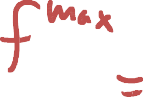 f^max =